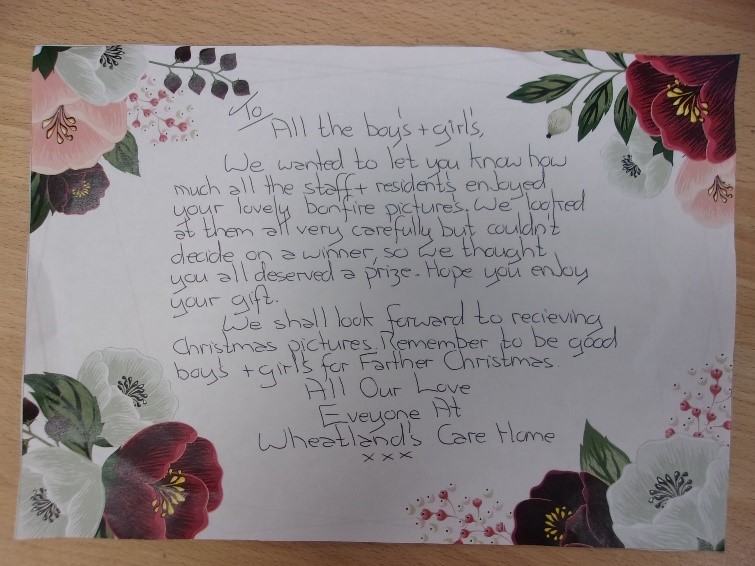 To
All the boy's + girl's,
We wanted to let you know how
much all the staff + resident's enjoyed
your lovely bonfire picture's. We looked
at them all very carefully but couldn't
decide on a winner, so we thought
you all deserved a prize. Hope you enjoy
your gift.
We shall look forward to recieving
Christmas pictures. Remember to be good
boy's + girl's for Farther Christmas.
All Our Love
Eveyone At
Wheatland's Care Home
x x x